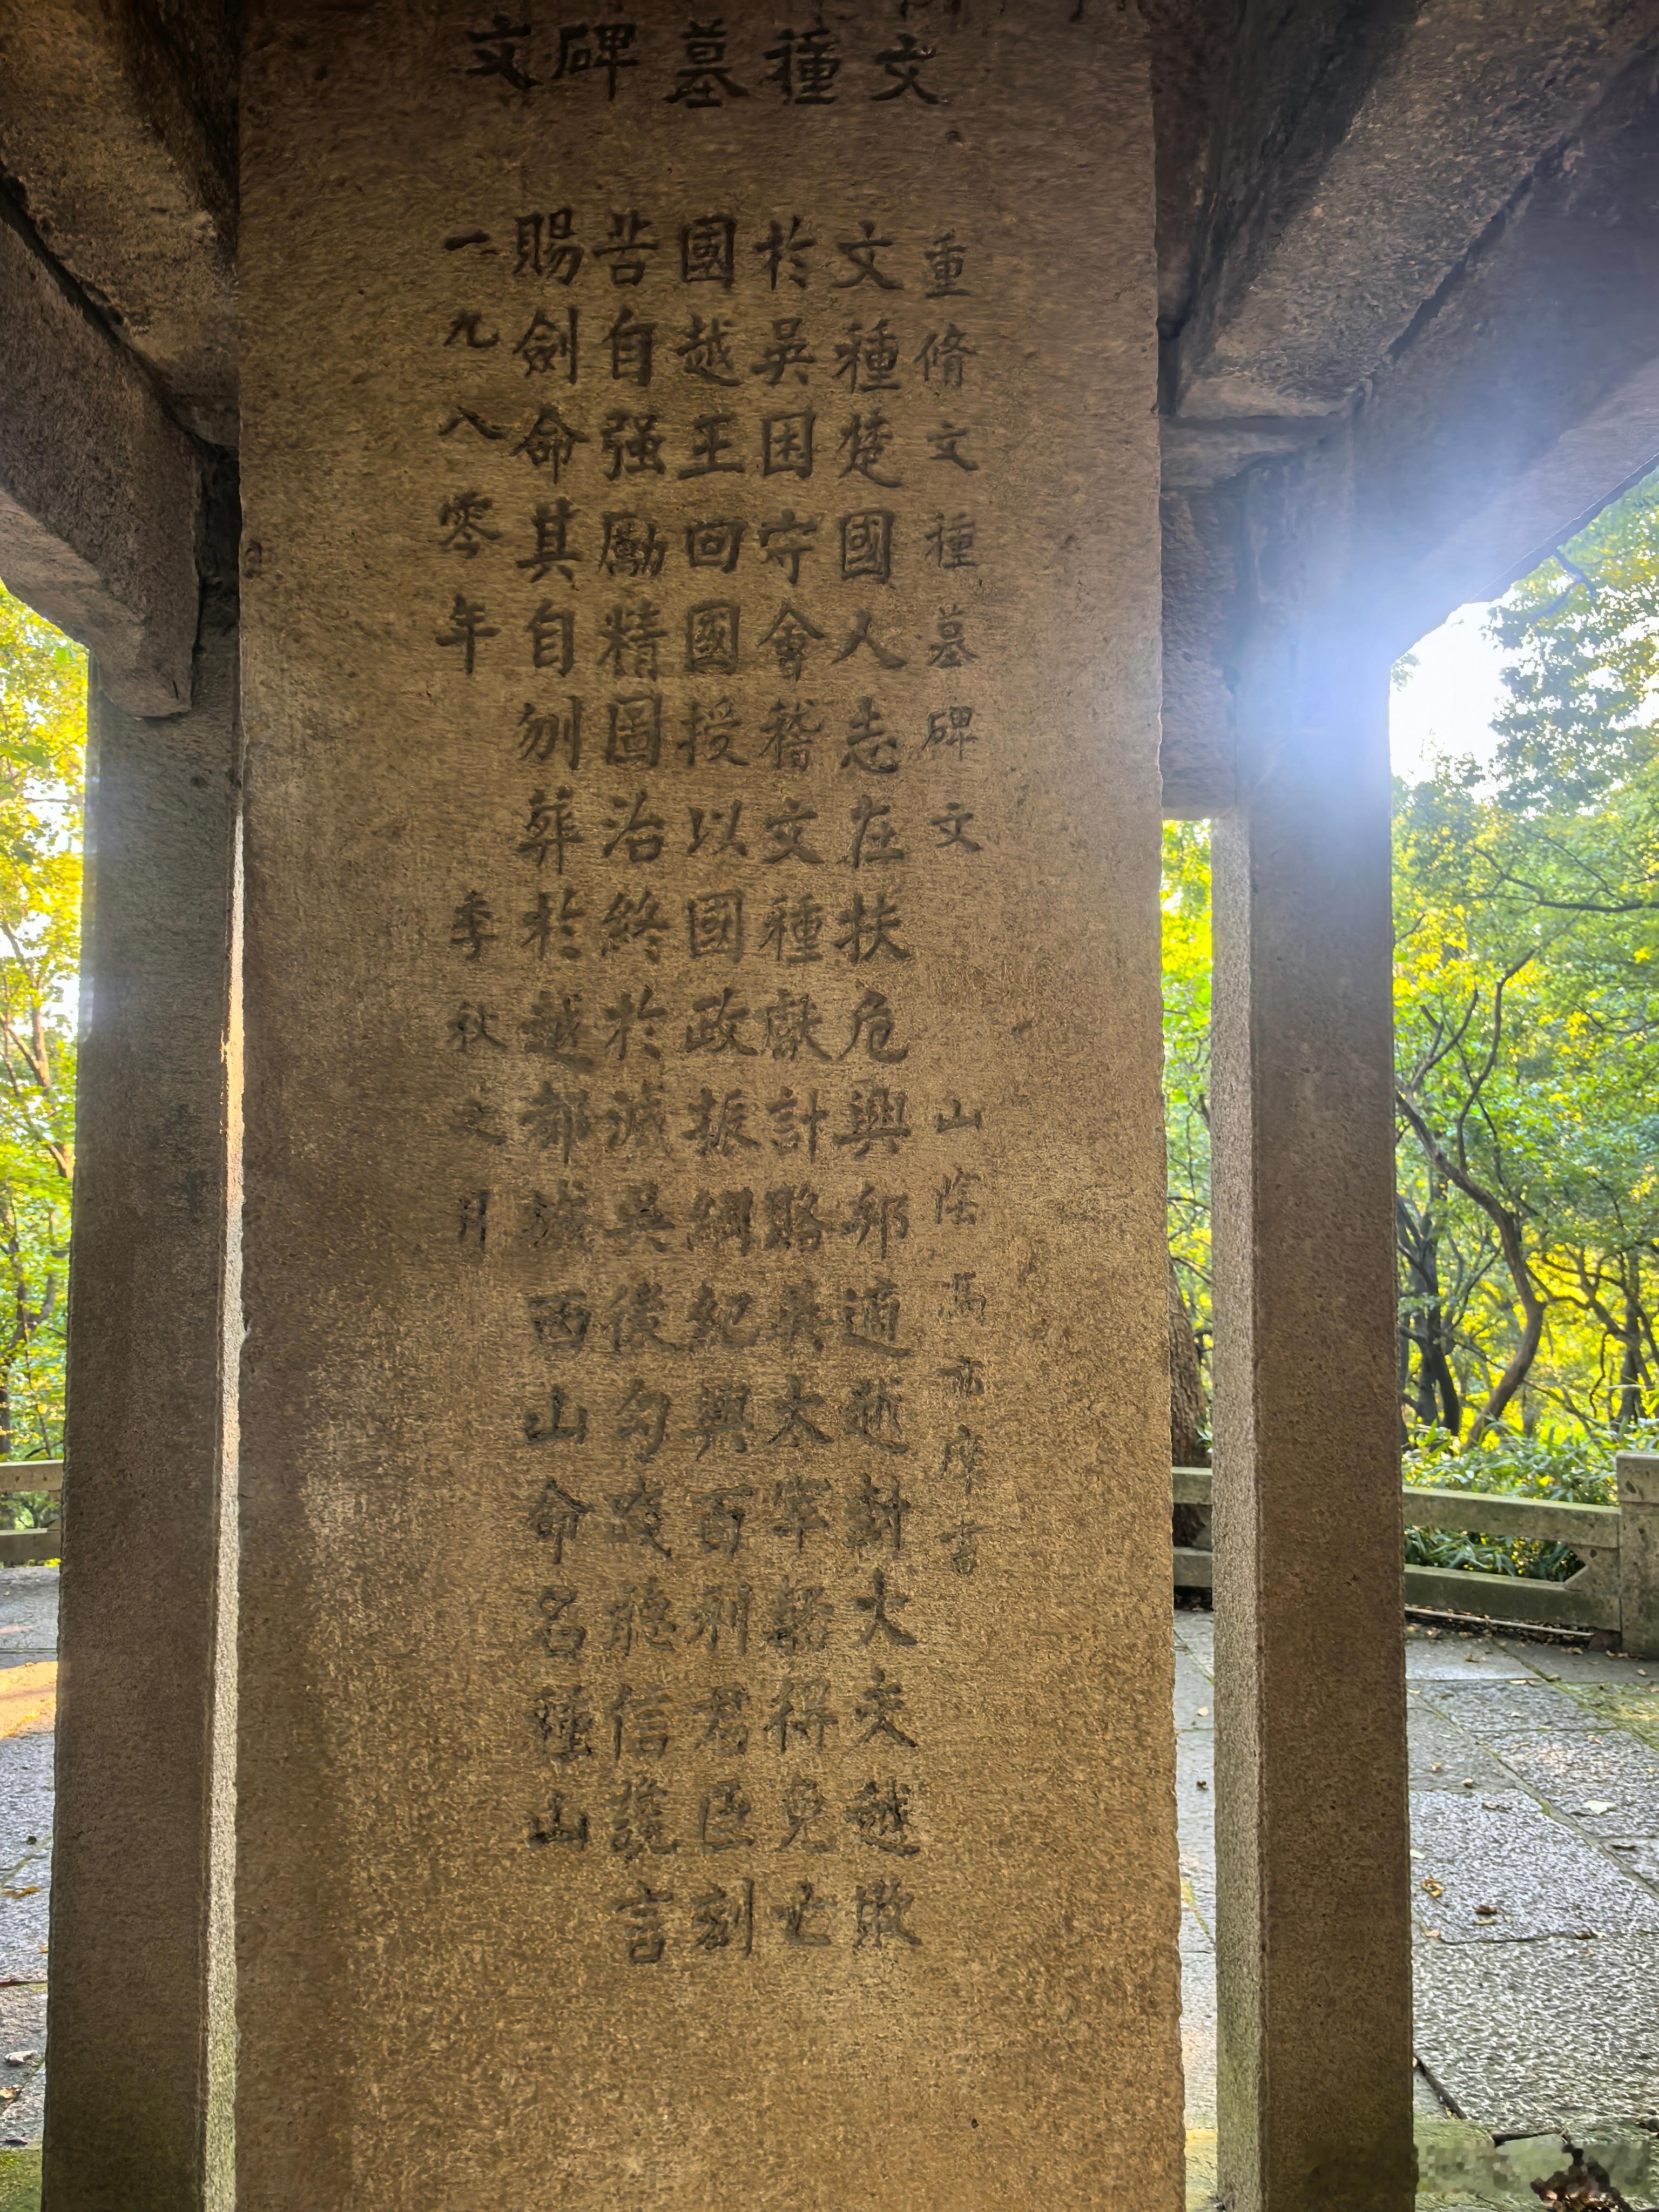 文種墓碑文
重脩文種墓碑文 山陰馮亦摩書
文種楚國人志在扶危興邦適越封大夫越敗
於吳困守會稽文種獻計賂吳太宰嚭得免亡
國越王回國授以國政振綱紀興百利君臣刻
苦自强勵精圖治終於滅吳後勾踐聽信讒言
賜劍命其自刎葬於越都城西山命名種山
一九八零年 季秋之月